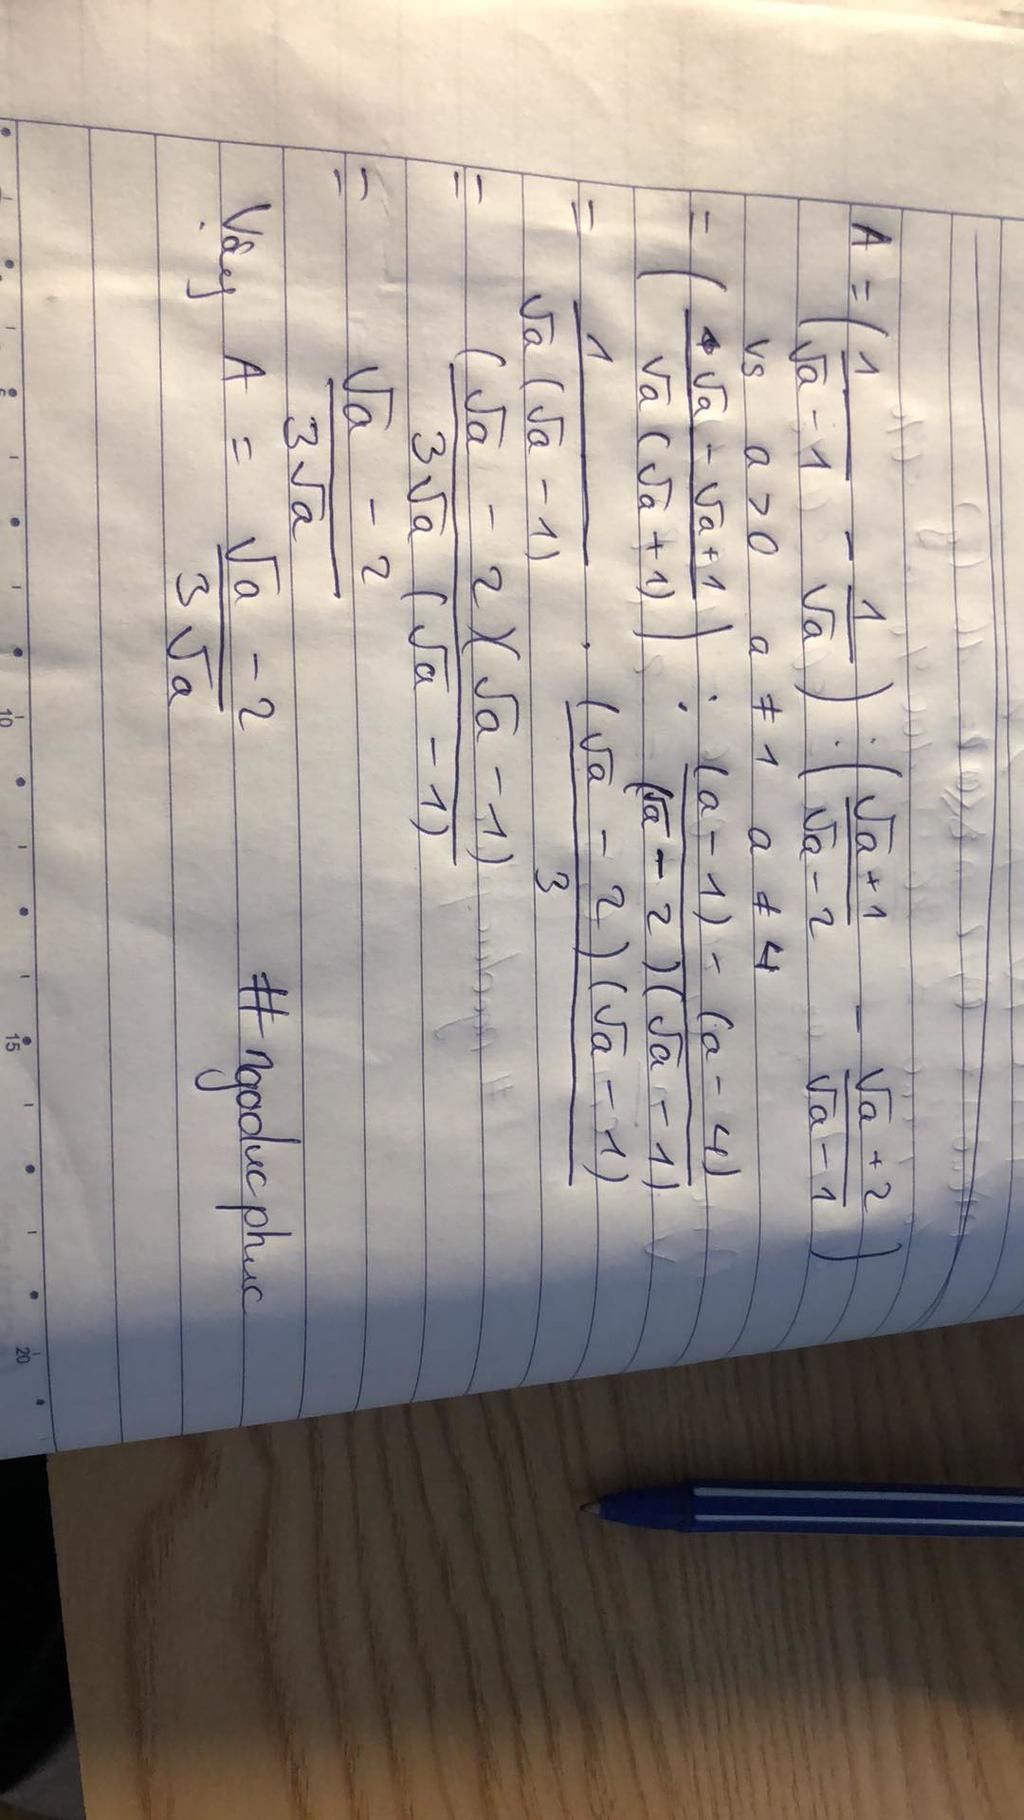 A = ( 1/(√a - 1) - 1/√a ) : ( (√a + 1)/(√a - 2) - (√a + 2)/(√a - 1) )
vs a > 0 a ≠ 1 a ≠ 4
= ( (√a - √a + 1)/(√a (√a + 1)) ) : ((a - 1) - (a - 4))/((√a - 2)(√a - 1))
= 1/(√a (√a - 1)) . ((√a - 2)(√a - 1))/3
= ((√a - 2)(√a - 1))/(3√a (√a - 1))
= (√a - 2)/(3√a)
Vậy A = (√a - 2)/(3√a) #ngoducphuc
5 10 15 20